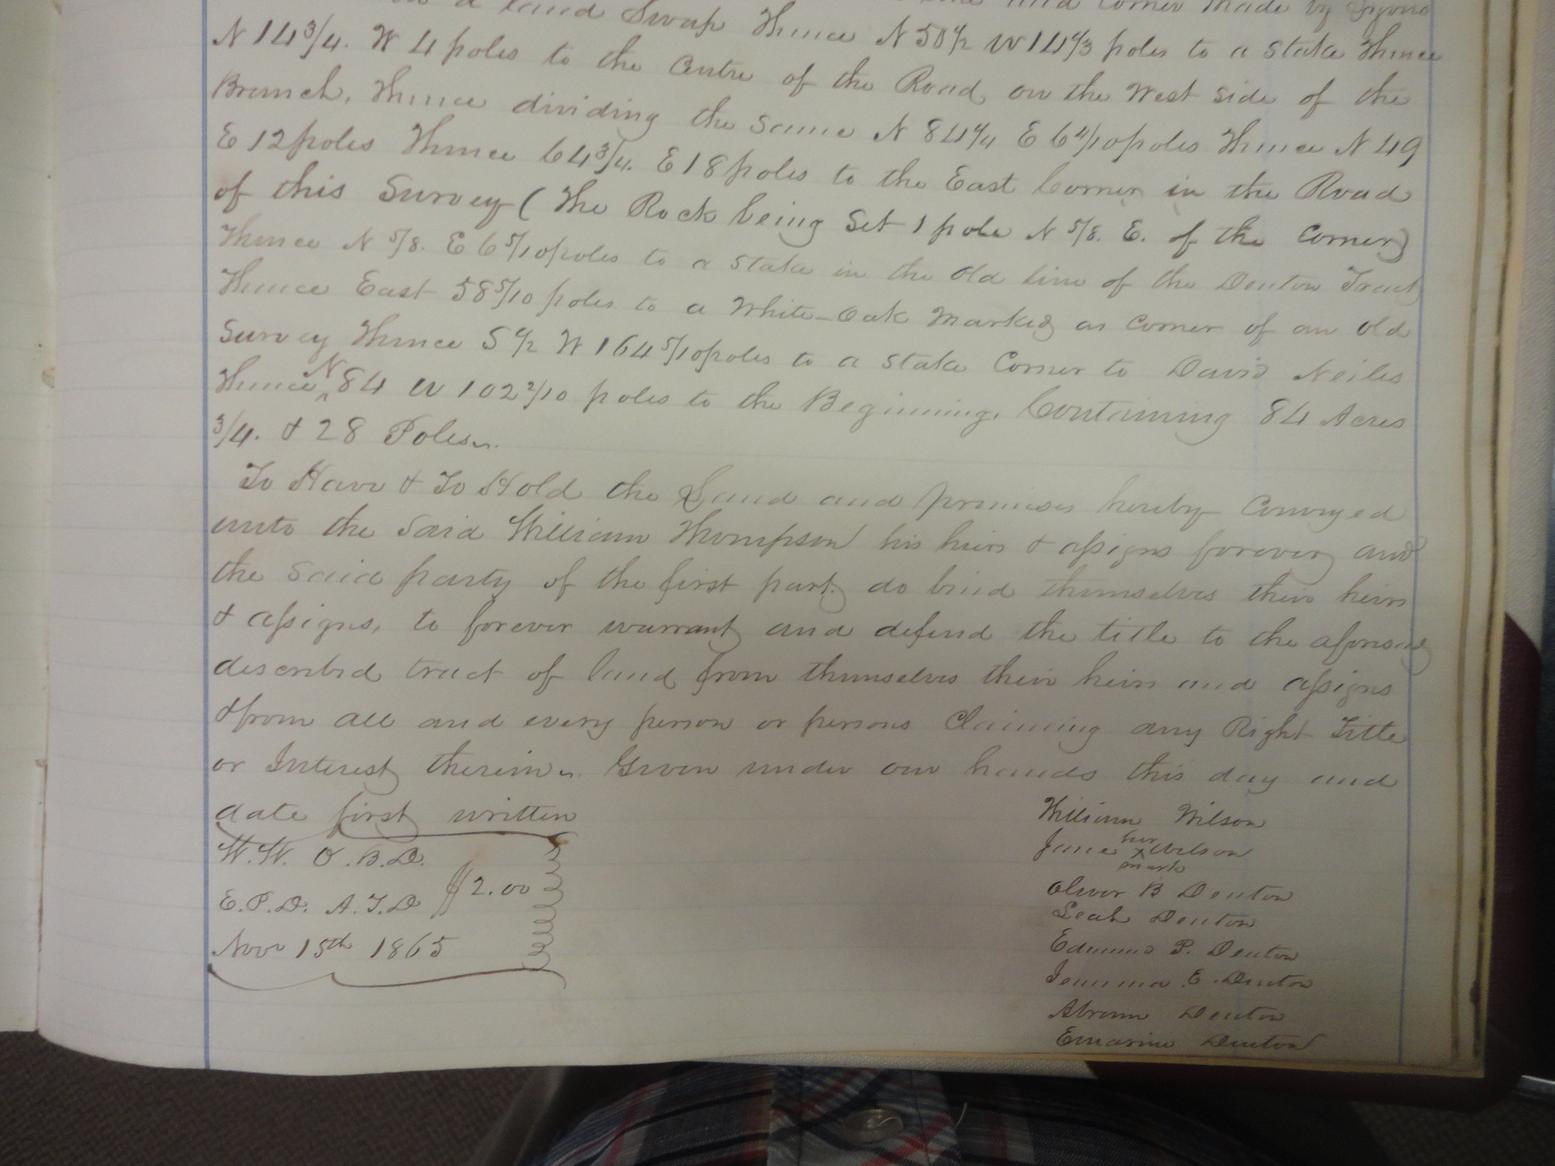 a land Swap Thence N 50 1/2 W 14 4/3 poles to a Stake Thence
N 14 3/4. W 4 poles to the Centre of the Road, on the West Side of the
Branch, Thence dividing the Same N 84 1/4 E 6 4/10 poles Thence N 49
E 12 poles Thence 64 3/4. E 18 poles to the East Corner in the Road
of this Survey (The Rock being Set 1 pole N 5/8. E. of the Corner)
Thence N 5/8. E 6 5/10 poles to a Stake in the old line of the Denton Tract
Thence East 58 5/10 poles to a White-Oak Marked as Corner of an old
Survey Thence S 4/2 W 164 5/10 poles to a Stake Corner to David Neiles
Thence N 84 W 102 2/10 poles to the Beginning. Containing 84 Acres
3/4. & 28 Poles.
To Have & To Hold the Land and premises hereby Conveyed
unto the Said William Thompson his heirs & assigns forever and
the Said party of the first part do bind themselves their heirs
& assigns, to forever warrant and defend the title to the aforesaid
described tract of land from themselves their heirs and assigns
& from all and every person or persons Claiming any Right Title
or Interest therein. Given under our hands this day and
date first written
W.W. O.B.D.
E.P.D. A.T.D $2.00
Nov 15th 1865
William Wilson
Jane her X mark Wilson
Oliver B Denton
Leah Denton
Edmund P. Denton
Jemima E. Denton
Abram Denton
Emarine Denton